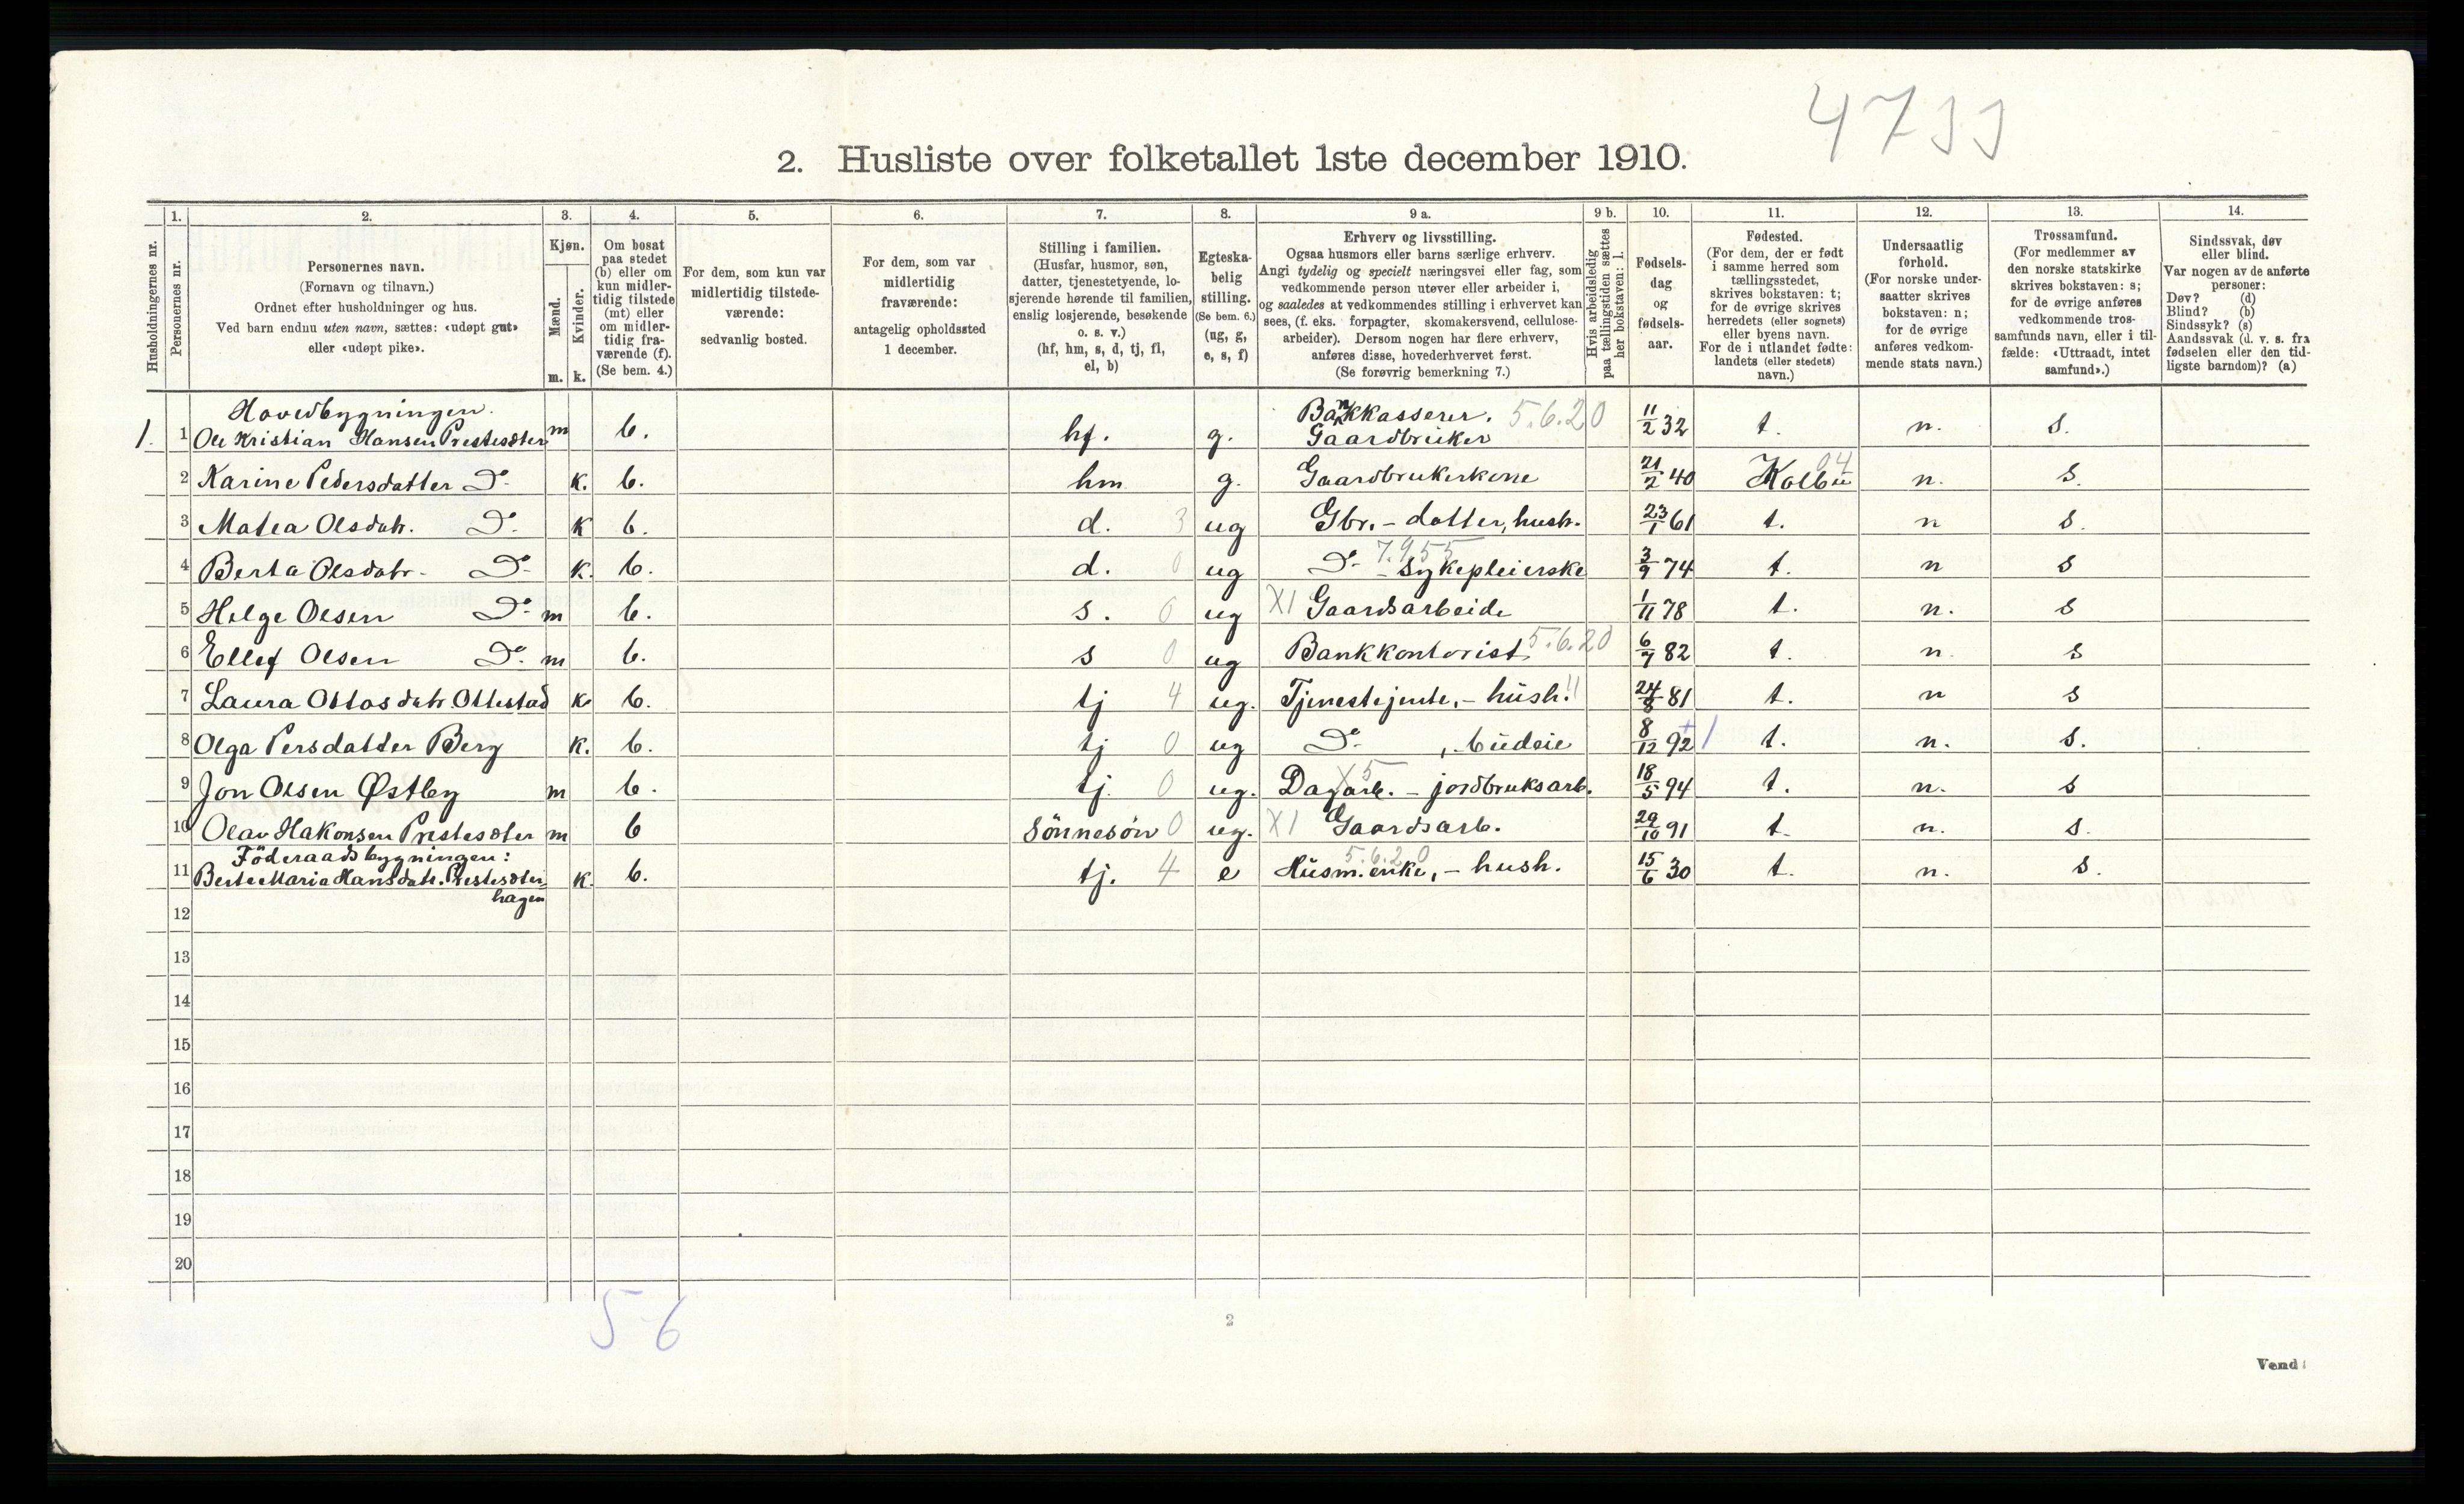 4733
2. Husliste over folketallet 1ste december 1910.
Husholdningernes nr.
1.
Personernes nr.
2.
Personernes navn.
(Fornavn og tilnavn.)
Ordnet efter husholdninger og hus.
Ved barn endnu uten navn, sættes: «udøpt gut»
eller «udøpt pike».
3.
Kjøn.
Mænd.
Kvinder.
m.
k.
4.
Om bosat
paa stedet
(b) eller om
kun midler-
tidig tilstede
(mt) eller
om midler-
tidig fra-
værende (f).
(Se bem. 4.)
5.
For dem, som kun var
midlertidig tilstede-
værende:
sedvanlig bosted.
6.
For dem, som var
midlertidig
fraværende:
antagelig opholdssted
1 december.
7.
Stilling i familien.
(Husfar, husmor, søn,
datter, tjenestetyende, lo-
sjerende hørende til familien,
enslig losjerende, besøkende
o. s. v.)
(hf, hm, s, d, tj, fl,
el, b)
8.
Egteska-
belig
stilling.
(Se bem. 6.)
(ug, g,
e, s, f)
9 a.
Erhverv og livsstilling.
Ogsaa husmors eller barns særlige erhverv.
Angi tydelig og specielt næringsvei eller fag, som
vedkommende person utøver eller arbeider i,
og saaledes at vedkommendes stilling i erhvervet kan
sees, (f. eks. forpagter, skomakersvend, cellulose-
arbeider). Dersom nogen har flere erhverv,
anføres disse, hovederhvervet først.
(Se forøvrig bemerkning 7.)
9 b.
Hvis arbeidsledig
paa tællingstiden sættes
her bokstaven: l.
10.
Fødsels-
dag
og
fødsels-
aar.
11.
Fødested.
(For dem, der er født
i samme herred som
tællingsstedet,
skrives bokstaven: t;
for de øvrige skrives
herredets (eller sognets)
eller byens navn.
For de i utlandet fødte:
landets (eller stedets)
navn.)
12.
Undersaatlig
forhold.
(For norske under-
saatter skrives
bokstaven: n;
for de øvrige
anføres vedkom-
mende stats navn.)
13.
Trossamfund.
(For medlemmer av
den norske statskirke
skrives bokstaven: s;
for de øvrige anføres
vedkommende tros-
samfunds navn, eller i til-
fælde: «Uttraadt, intet
samfund».)
14.
Sindssvak, døv
eller blind.
Var nogen av de anførte
personer:
Døv? (d)
Blind? (b)
Sindssyk? (s)
Aandssvak (d. v. s. fra
fødselen eller den tid-
ligste barndom)? (a)
Hovedbygningen. Bankkasserer. 5.6.20
1. 1 Ole Kristian Hansen Prestesæter m b. hf. g. Gaardbruker 11/2 32 t. n. s.
2 Karine Pedersdatter Do. k. b. hm g. Gaardbrukerkone 21/2 40 Kolbu 04 n. s.
3 Matea Olsdatr. Do. k b. d. 3 ug Gbr. - datter, hush. 23/1 61 t. n s.
4 Berta Olsdatr. Do. k. b. d. 0 ug Do. - Sykepleierske 7.955 3/9 74 t. n s
5 Helge Olsen Do. m b. s. 0 ug X1 Gaardsarbeide 1/11 78 t. n. s
6 Ellef Olsen Do. m b. s 0 ug Bankkontorist. 5.6.20 6/7 82 t. n. s
7 Laura Ottosdatr. Ottestad k b. tj 4 ug. Tjenestejente, - hush. 11 24/8 81 t. n s
8 Olga Persdatter Berg k. b. tj 0 ug Do. , budeie 8/12 92 +1 t. n. s.
9 Jon Olsen Østby m b. tj. 0 ug. Dagarb. - jordbruksarb. X5 18/5 94 t. n. s
10 Olav Hakonsen Prestesæter m b sönnesön 0 ug. X1 Gaardsarb. 29/10 91 t. n. s.
Föderaadsbygningen: 5.6.20
11 Berte Maria Hansdatr. Prestesæter- k. b. tj. 4 e Husm. enke, - hush. 15/6 30 t. n. s.
hagen
12
13
14
15
16
17
18
19
20
5-6
2
Vend!